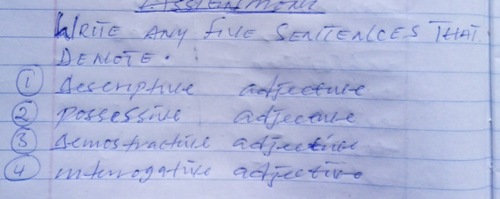 ASSIGNMENT
WRITE ANY FIVE SENTENCES THAT
DENOTE.
1 descriptive adjective
2 possessive adjective
3 demostractive adjective
4 interrogative adjective